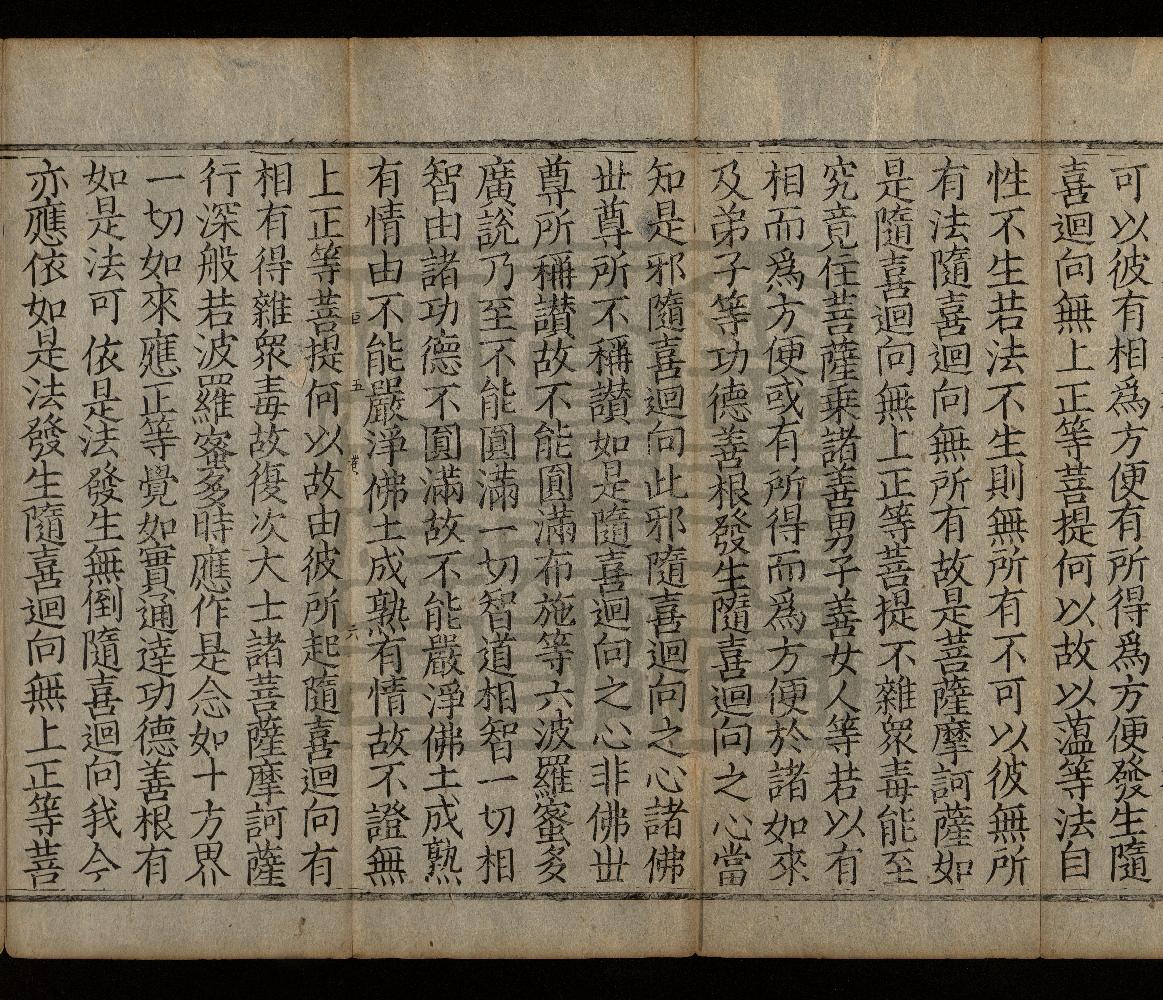 可以彼有相爲方便有所得爲方便發生隨
喜迴向無上正等菩提何以故以蘊等法自
性不生若法不生則無所有不可以彼無所
有法隨喜迴向無所有故是菩薩摩訶薩如
是隨喜迴向無上正等菩提不雜衆毒能至
究竟住菩薩乗諸善男子善女人等若以有
相而爲方便或有所得而爲方便於諸如來
及弟子等功德善根發生隨喜迴向之心當
知是邪隨喜迴向此邪隨喜迴向之心諸佛
世尊所不稱讃如是隨喜迴向之心非佛世
尊所稱讃故不能圓滿布施等六波羅蜜多
廣說乃至不能圓滿一切智道相智一切相
智由諸功德不圓滿故不能嚴淨佛土成熟
有情由不能嚴淨佛土成熟有情故不證無
五 六
上正等菩提何以故由彼所起隨喜迴向有
相有得雜衆毒故復次大士諸菩薩摩訶薩
行深般若波羅蜜多時應作是念如十方界
一切如來應正等覺如實通達功德善根有
如是法可依是法發生無倒隨喜迴向我今
亦應依如是法發生隨喜迴向無上正等菩